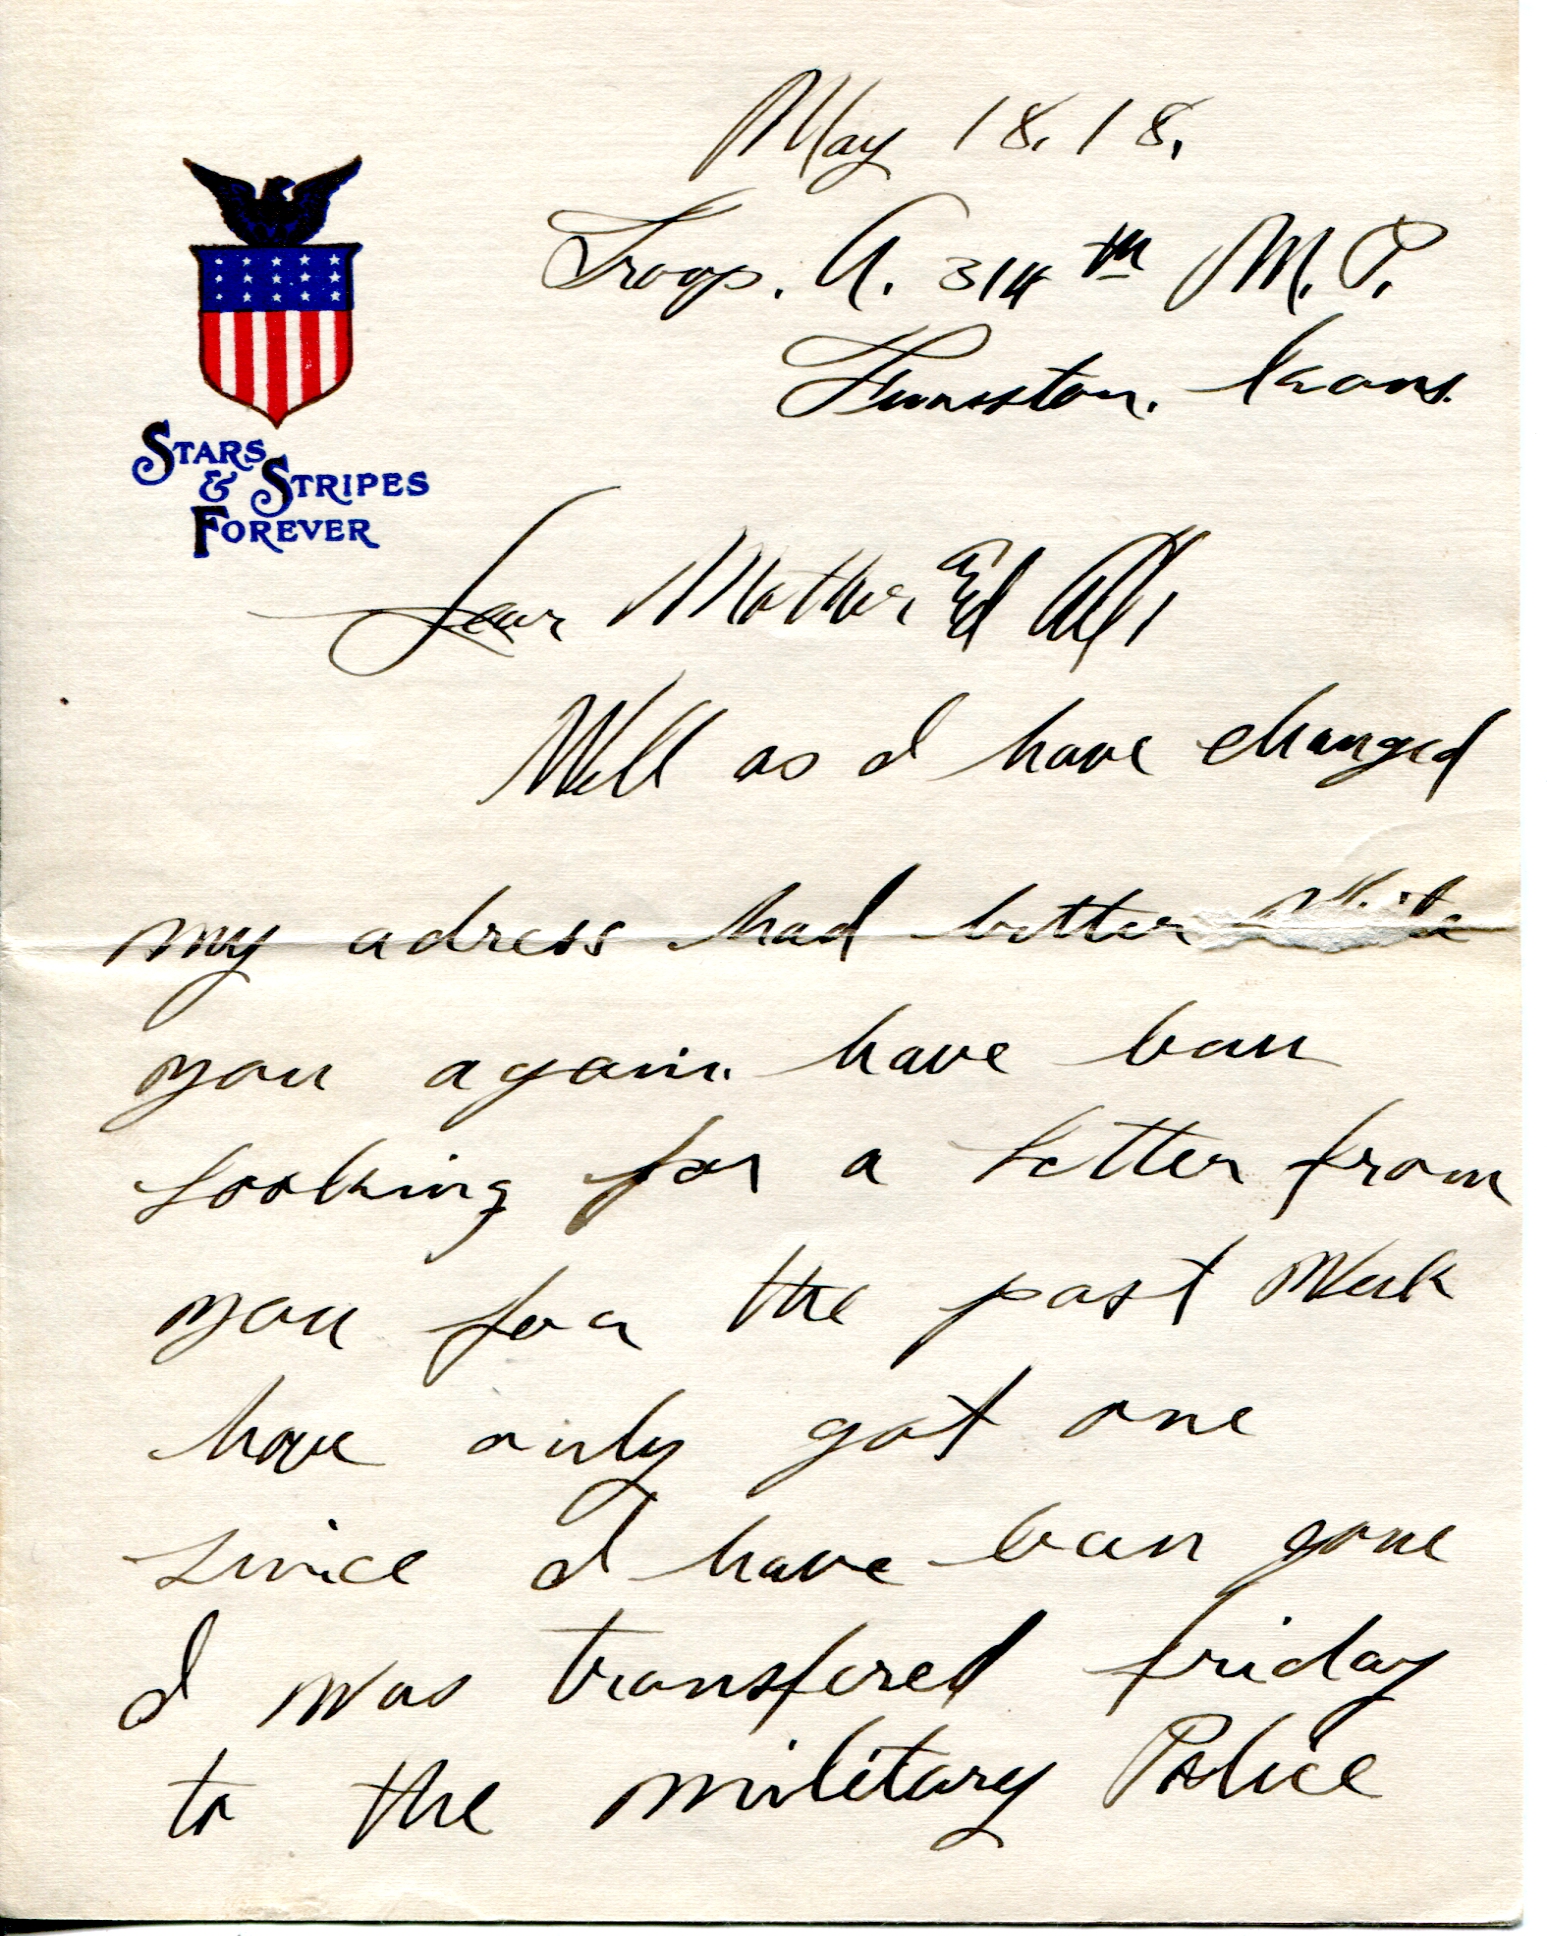 May 18. 18.
Troop. A. 314th M. P.
Funston. Kans.
STARS
& STRIPES
FOREVER
Dear Mother and All
Well as I have changed
my adress had better write
you again. have ban
looking for a letter from
you for the past week
have only got one
since I have ban gone
I was transfered friday
to the military Police